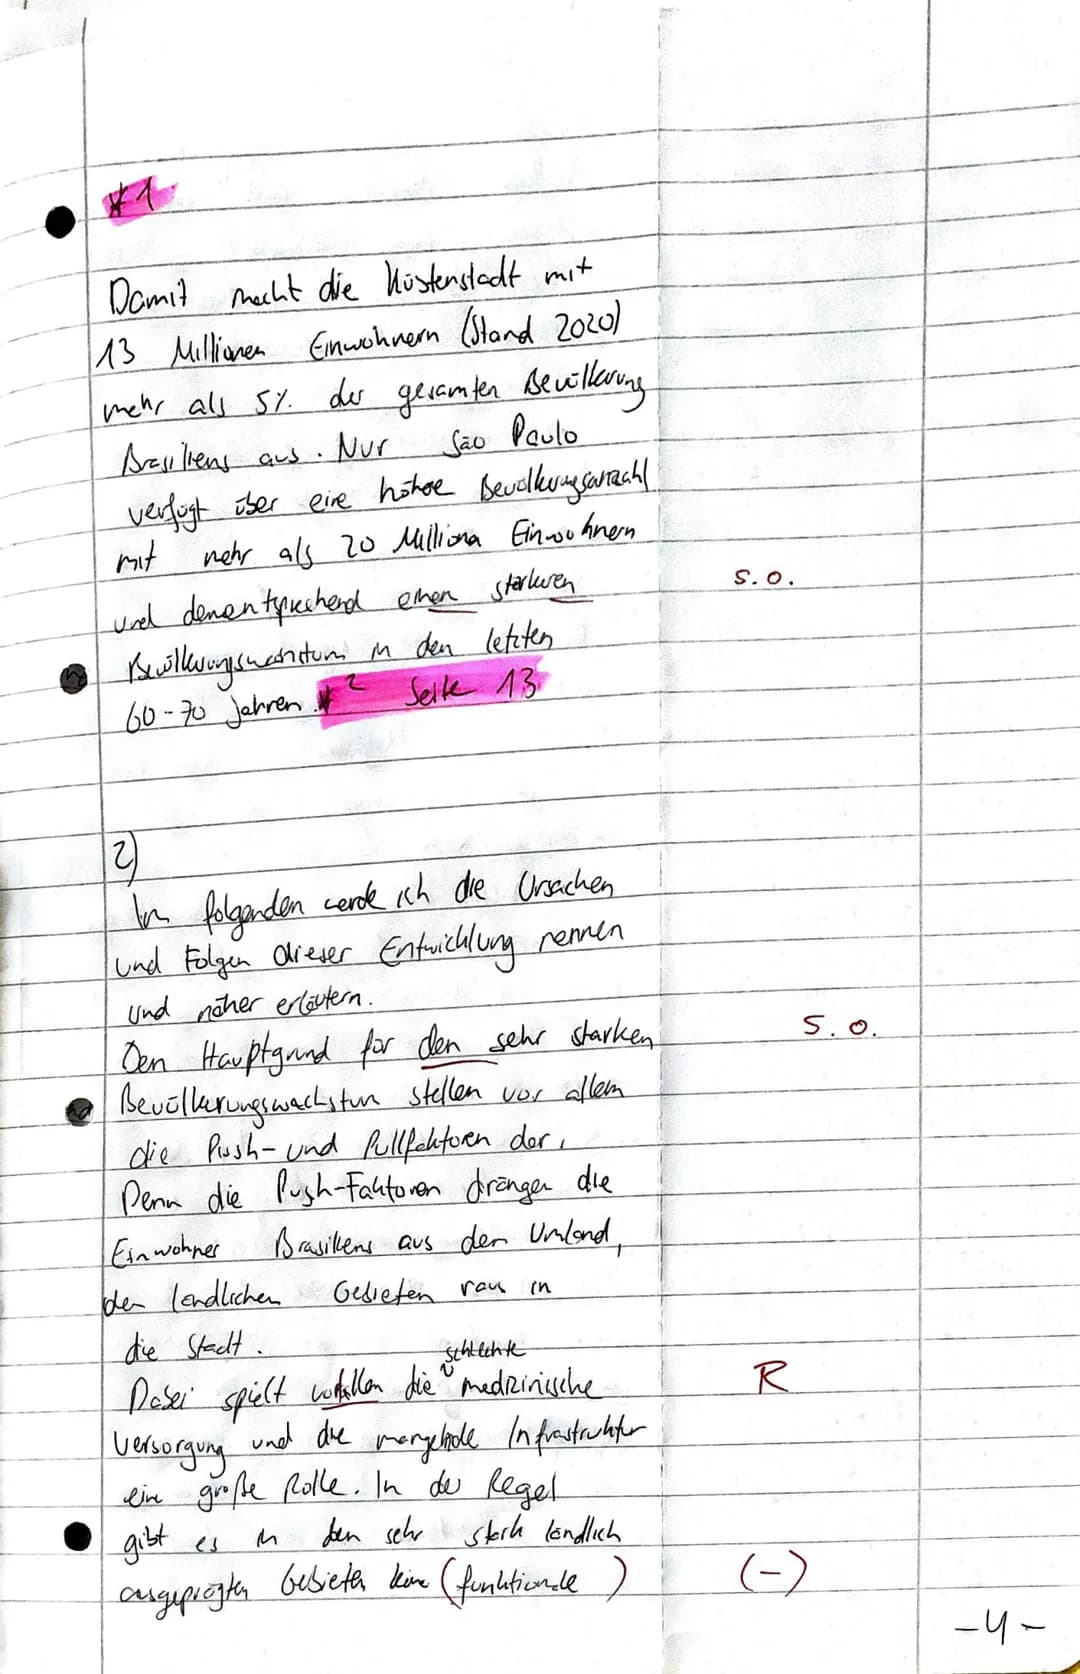 *1
Damit macht die Küstenstadt mit
13 Millionen Einwohnern (Stand 2020)
mehr als 5% der gesamten Bevölkerung
Brasiliens aus. Nur São Paulo
verfügt über eine höhere Bevölkerungsanzahl
mit mehr als 20 Millionen Einwohnern
und dementsprechend einen stärkeren s.o.
Bevölkerungswachstum in den letzten
60-70 Jahren. *2 Seite 13
2)
Im folgenden werde ich die Ursachen
und Folgen dieser Entwicklung nennen
und näher erläutern.
Den Hauptgrund für den sehr starken s.o.
Bevölkerungswachstum stellen vor allem
die Push- und Pullfaktoren dar.
Denn die Push-Faktoren drängen die
Einwohner Brasiliens aus dem Umland,
den ländlichen Gebieten raus in
die Stadt.
schlechte
Dabei spielt vorallen die medizinische R
Versorgung und die mangelnde Infrastruktur
eine große Rolle. In der Regel
gibt es in den sehr stark ländlich
ausgeprägten Gebieten keine (funktionde ) (-)
-4-